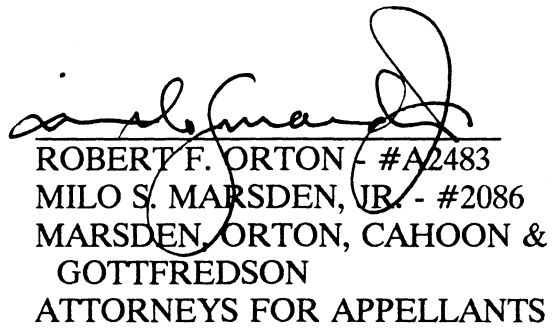 ROBERT F. ORTON - #A2483
MILO S. MARSDEN, JR. - #2086
MARSDEN, ORTON, CAHOON &
GOTTFREDSON
ATTORNEYS FOR APPELLANTS